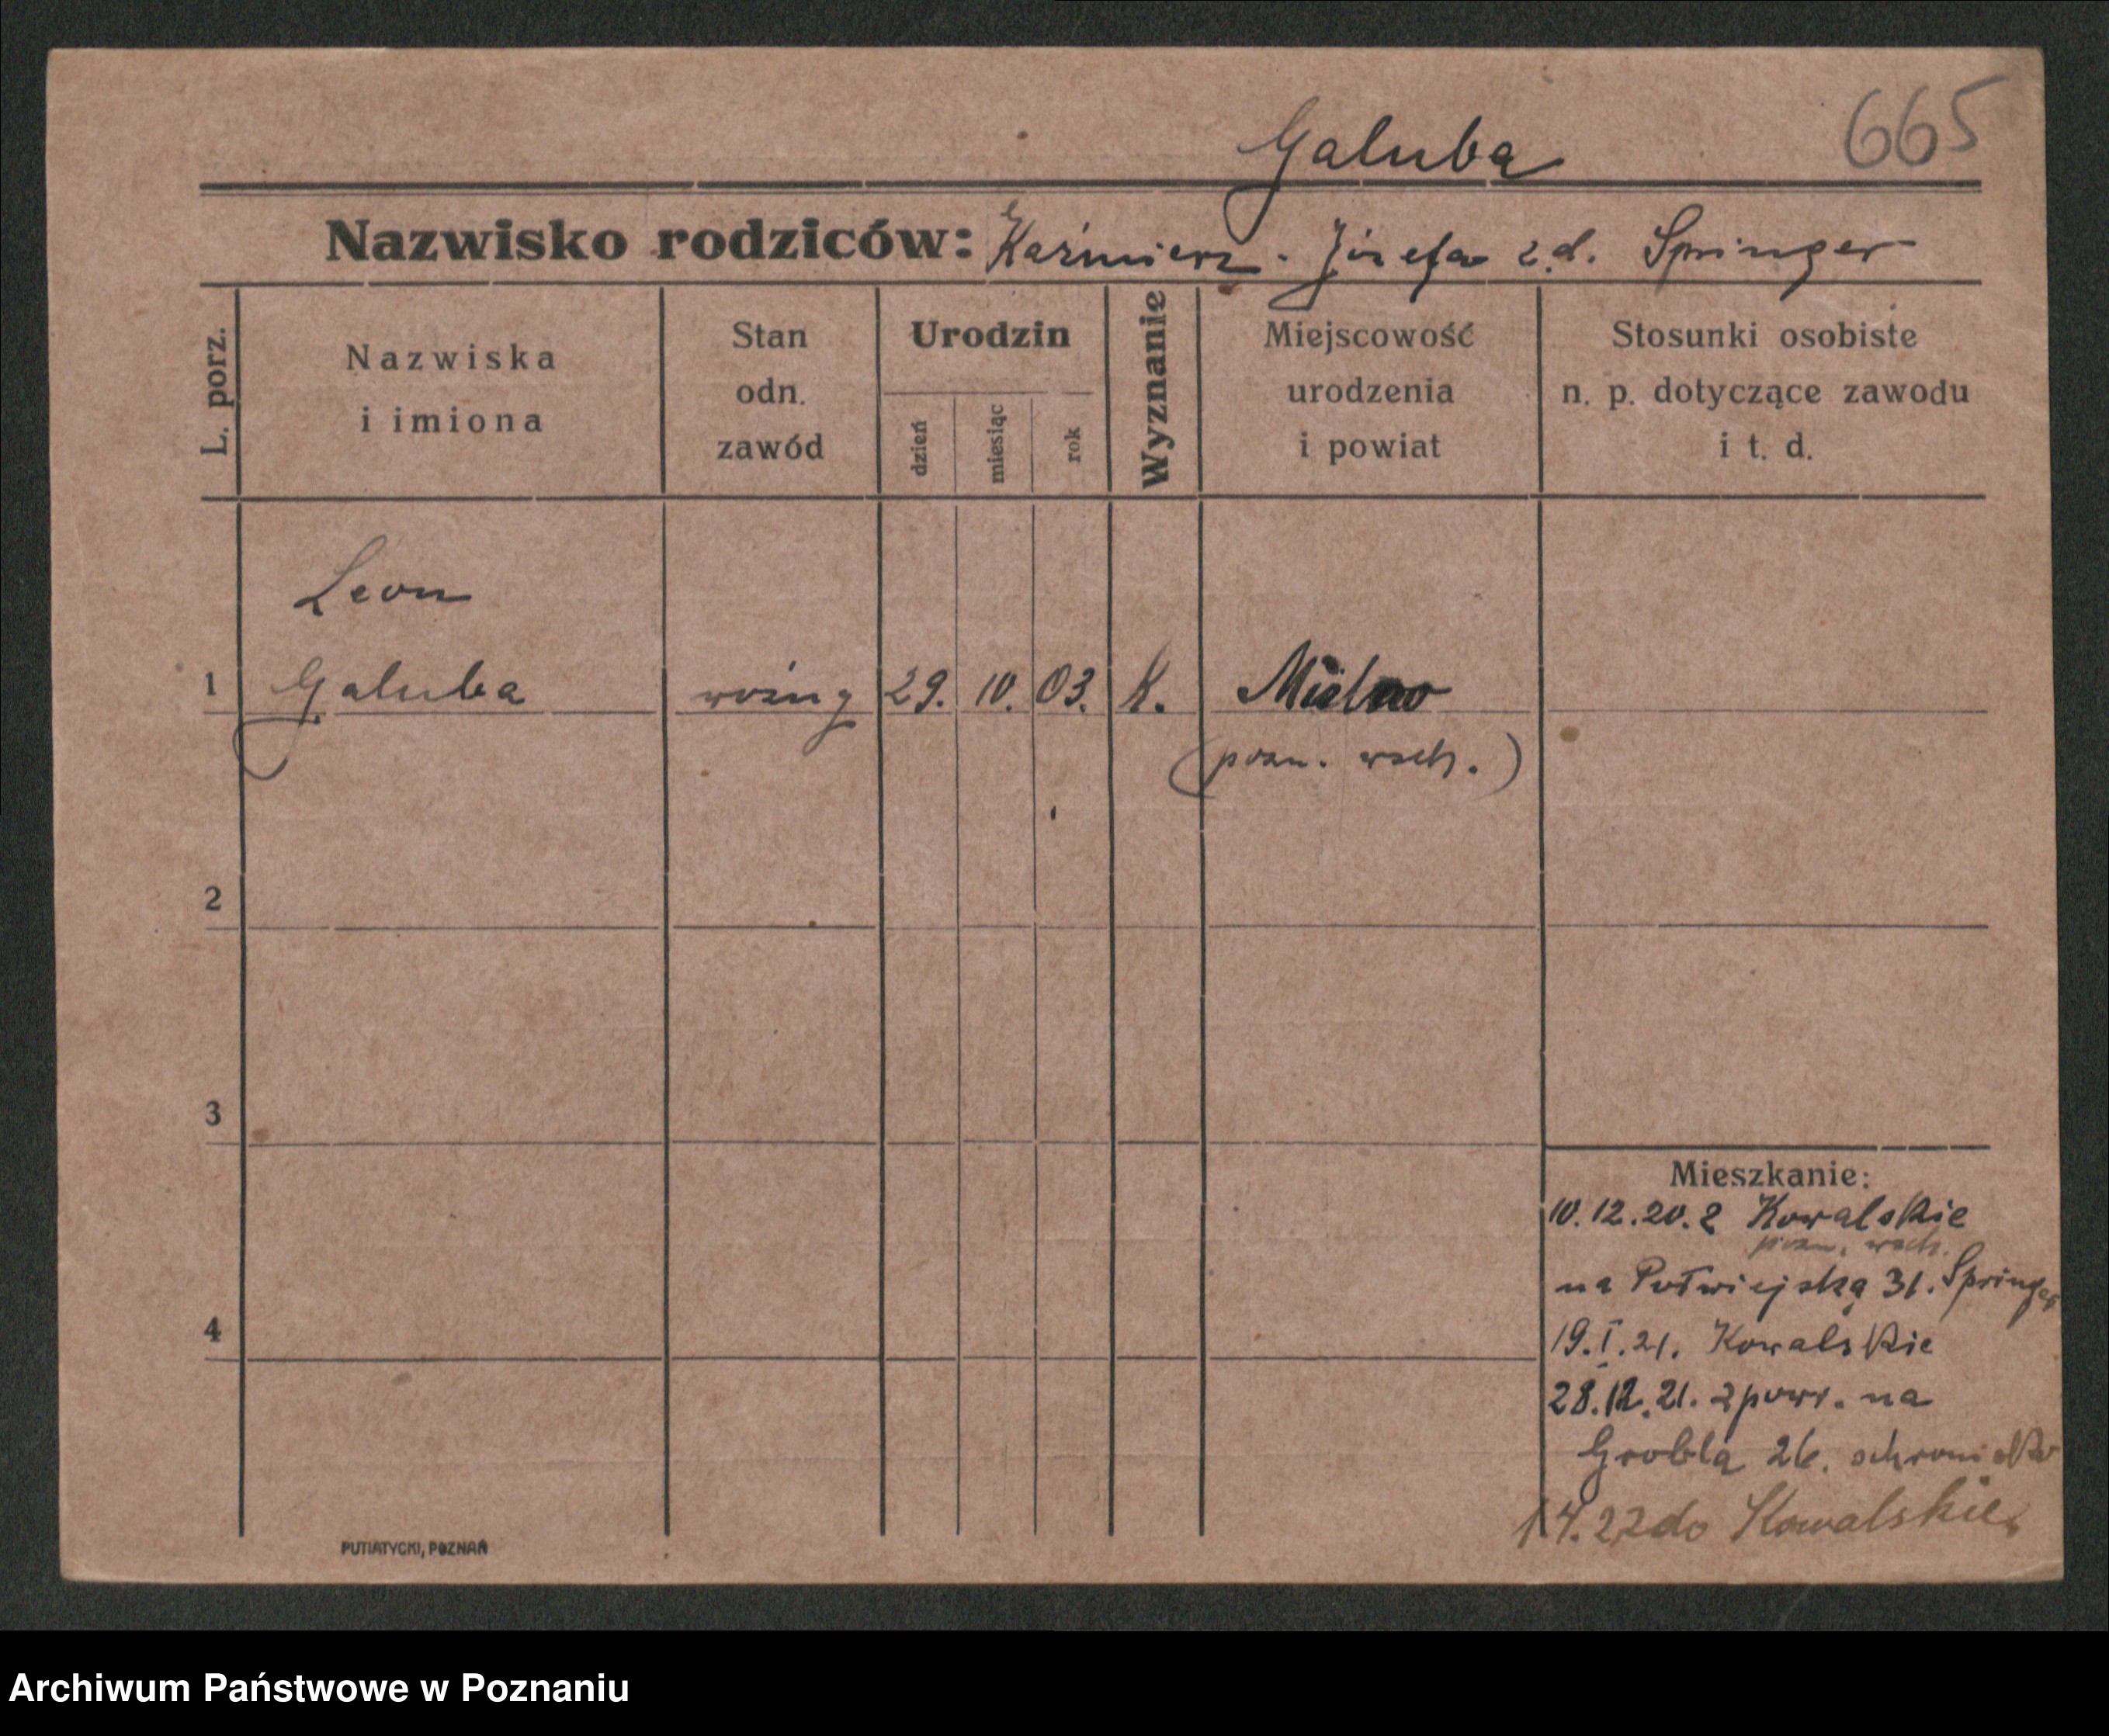 665
Galuba
Nazwisko rodziców: Kaźmierz - Józefa z d. Springer
L. porz.
Nazwiska
i imiona
Stan
odn.
zawód
Urodzin
dzień
miesiąc
rok
Wyznanie
Miejscowość
urodzenia
i powiat
Stosunki osobiste
n. p. dotyczące zawodu
i t. d.
Leon
1 Galuba woźny 29. 10. 03. K. Mielno
(pozn. wsch.)
2
3
4
Mieszkanie:
10.12.20. z Kowalskie
pozn. wsch.
na Półwiejską 31. Springer
19.I.21. Kowalskie
28.12.21. z powr. na
Groblą 26.
do Kowalskie
PUTIATYCKI, POZNAŃ
Archiwum Państwowe w Poznaniu